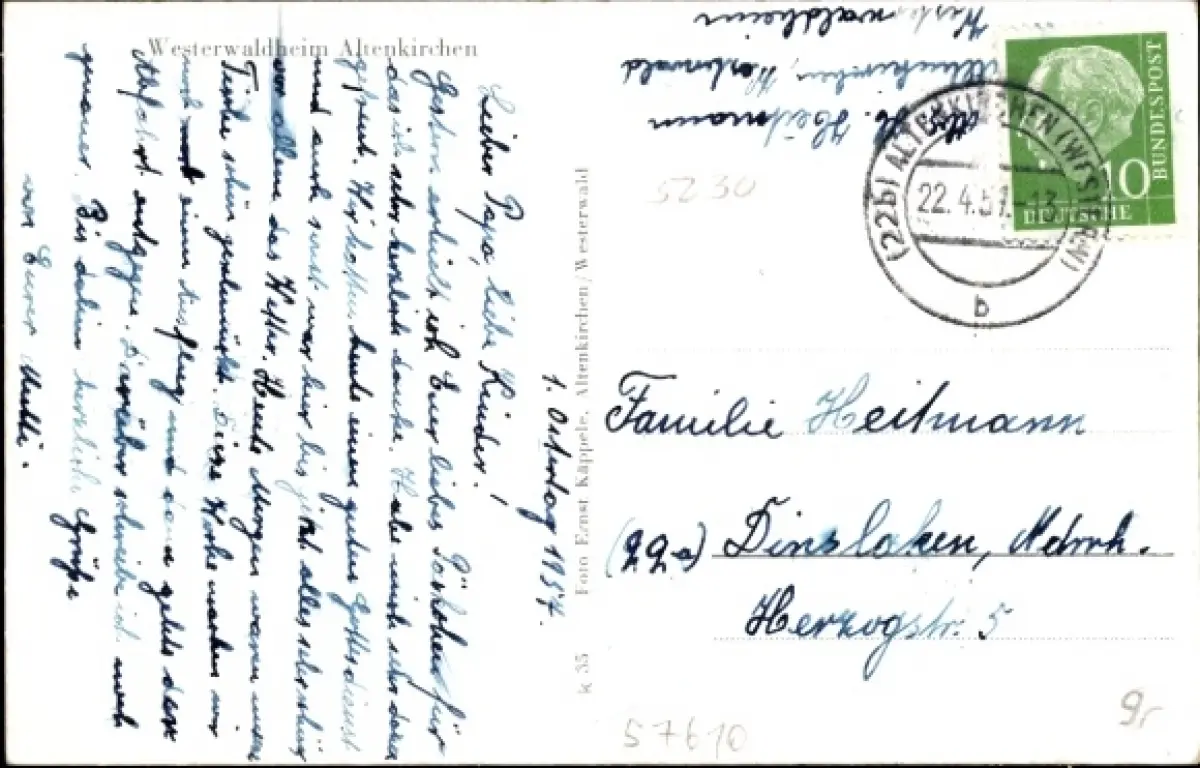 Westerwaldheim Altenkirchen
1. Ostertag 1957.
Lieber Papa, liebe Kinder!
Gestern erhielt ich Euer liebes Päckchen, für
das ich sehr herzlich danke. Habe mich sehr darüber
gefreut. Wir hatten heute einen guten Gottesdienst
und auch sonst war hier bis jetzt alles sehr schön
vor allem das Wetter. Heute Morgen waren unsere
Tische schön geschmückt. Diese Woche machen wir
noch einen Ausflug und dann gehts der
Abfahrt entgegen. Darüber schreibe ich noch
genauer. Bis dahin herzliche Grüße
von Eurer Mutti.
Foto Ernst Käppele, Altenkirchen/Westerwald
k 55
Abs. H. Heitmann
Altenkirchen, Westerwald
Westerwaldheim
5230
(22b) ALTENKIRCHEN (WESTERW)
22.4.57.-13
b
10
DEUTSCHE
BUNDESPOST
Familie Heitmann
(22a) Dinslaken, Ndrrh.
Herzogstr. 5
57610
gr